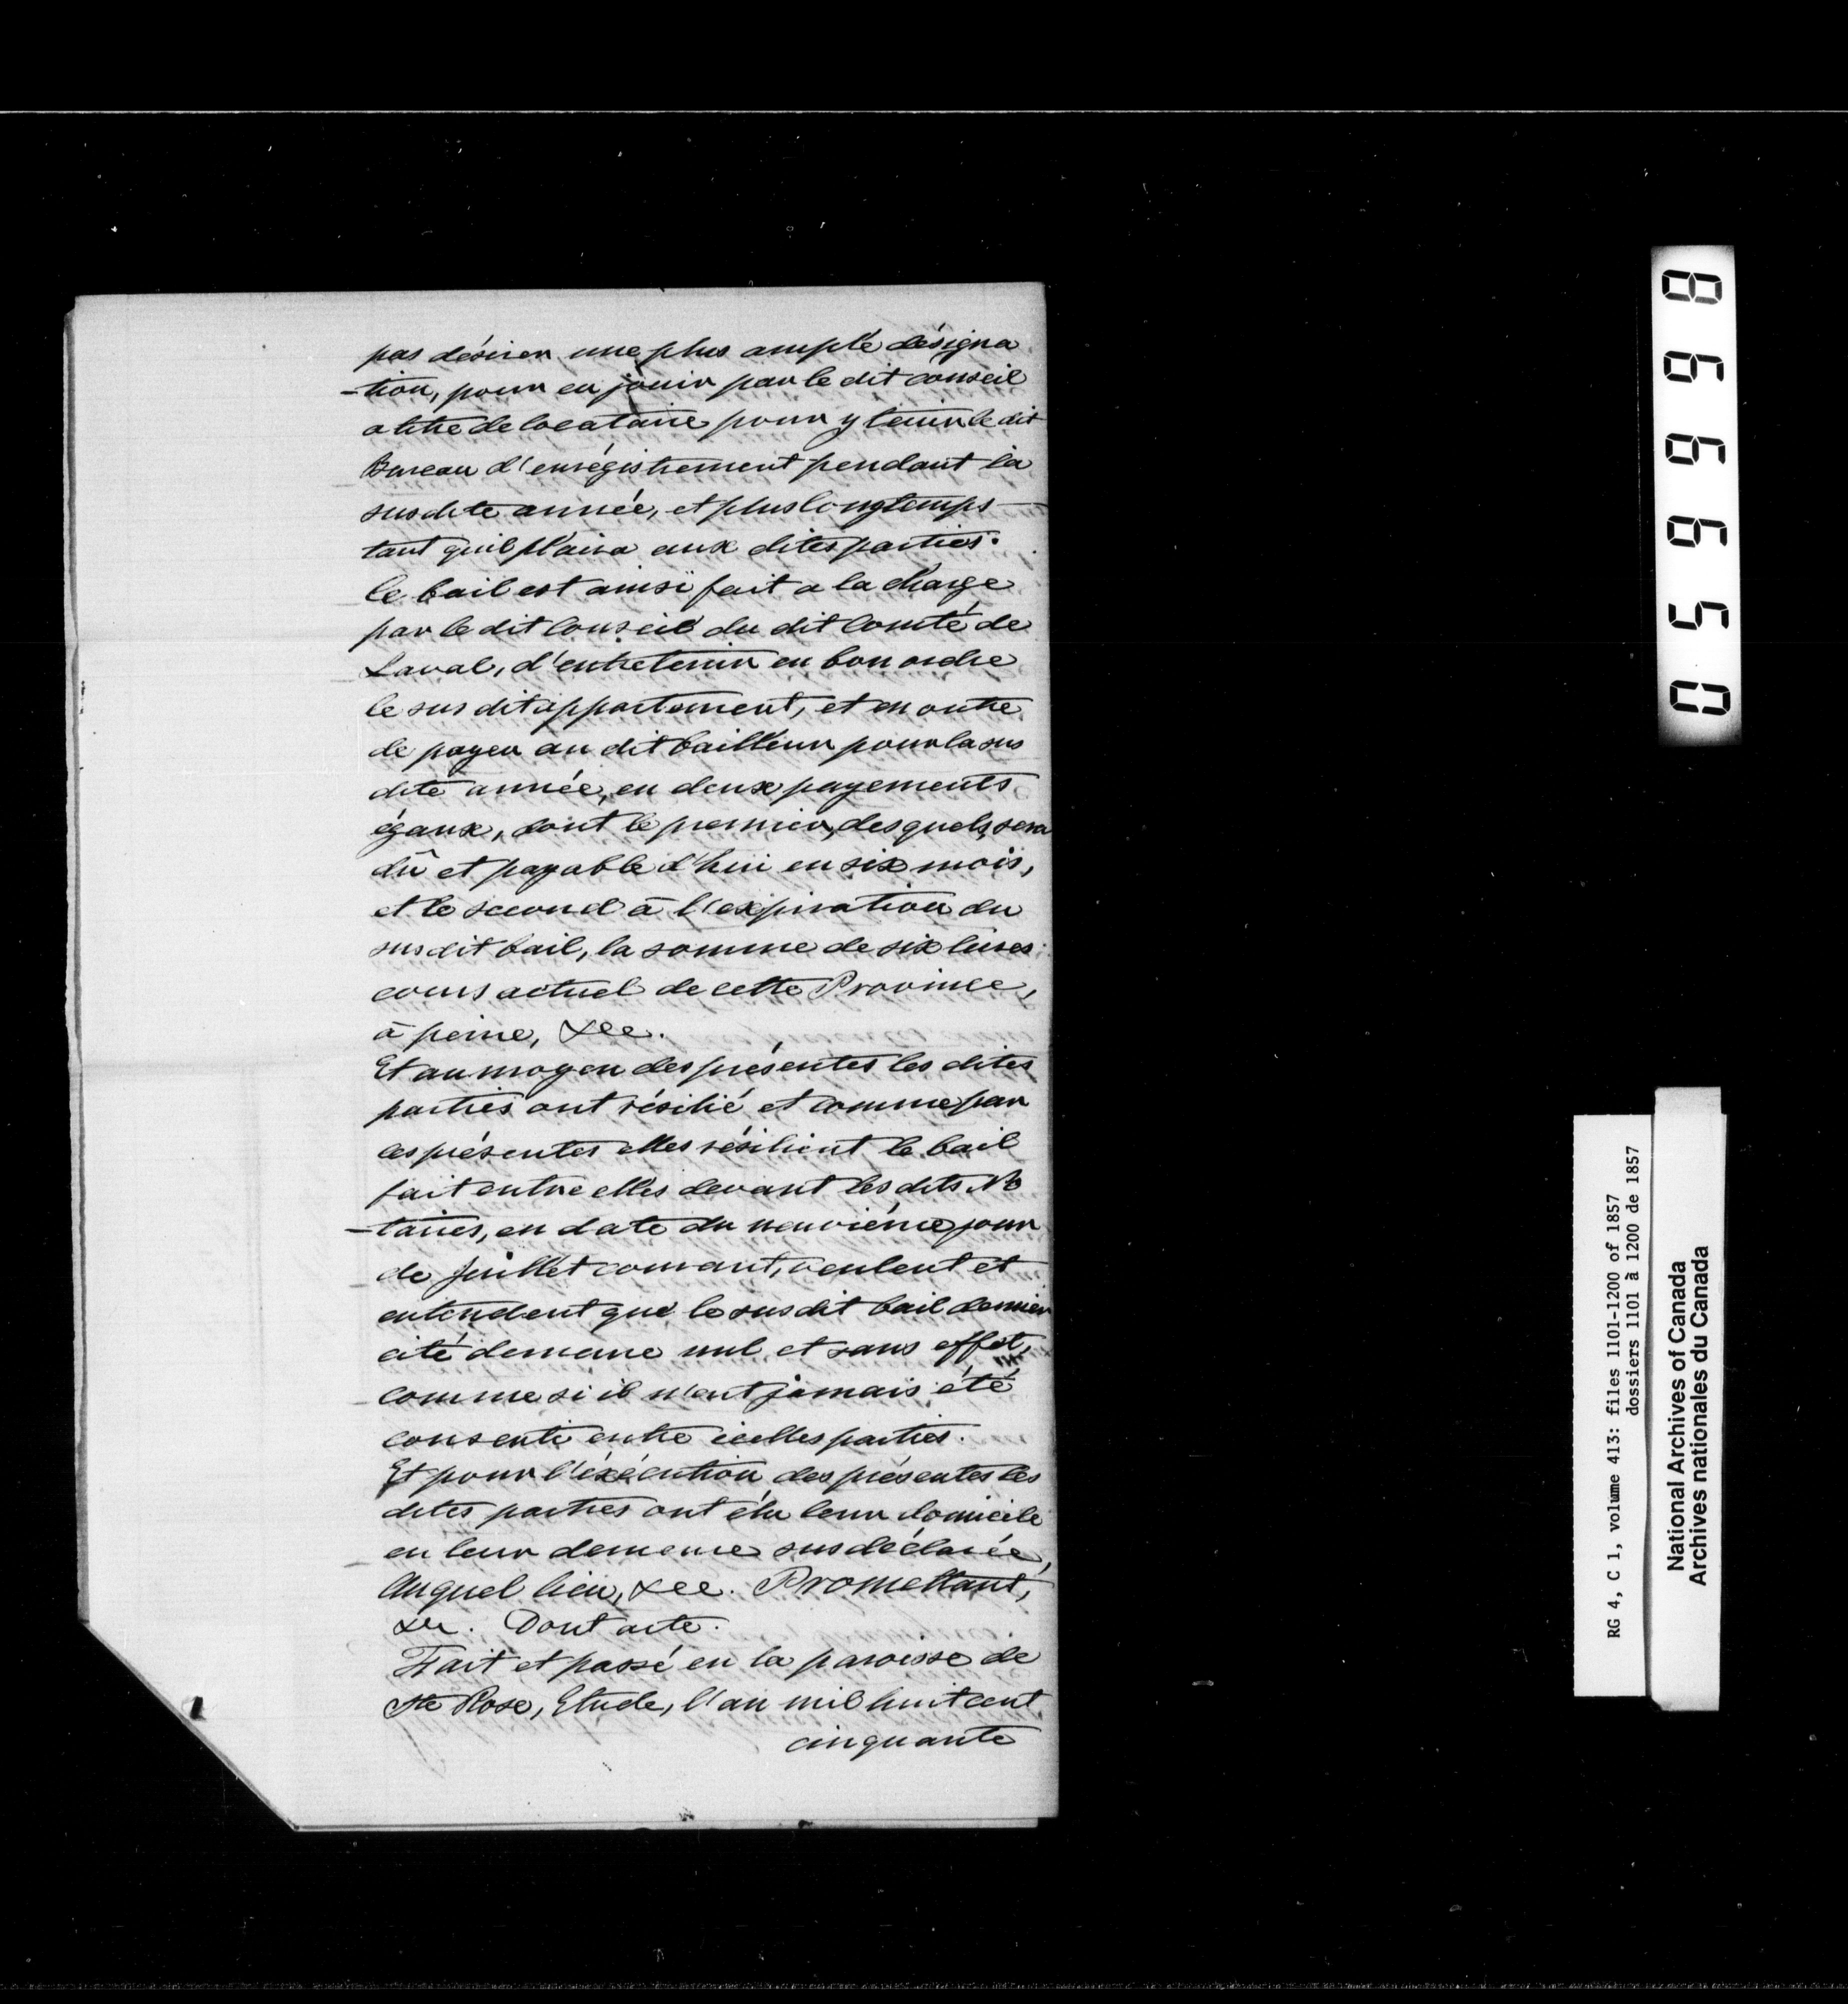 pas désirer une plus ample désigna
-tion, pour en jouir par le dit conseil
a titre de locataire pour y tenir le dit
Bureau d'enrégistrement pendant la
susdite année, et plus longtemps
tant qu'il plaira aux dites parties.
Le bail est ainsi fait a la charge
par le dit Conseil du dit Comté de
Laval, d'entretenir en bon ordre
le sus dit appartement, et en outre
de payer au dit bailleur pour la sus
dite année, en deux payements
égaux, dont le premier, des quels, sera
dû et payable d'hui en six mois,
et le second à l'expiration du
susdit bail, la somme de six livres
cours actuel de cette Province,
à peine, &ce.
Et au moyen des présentes les dites
parties ont résilié et comme par
ces présentes elles résilient le bail
fait entre elles devant les dits No
-taires, en date du neuvième jour
de Juillet courant, veulent et
entendent que le susdit bail dernier
cité demeure nul et sans effet,
comme si il n'eut jamais été
consenti entre icelles parties.
Et pour l'éxécution des présentes les
dites parties ont élu leur domicile
en leur demeure susdéclarée,
Auquel lieu, &ce. Promettant,
&ce. Dont acte.
Fait et passé en la paroisse de
Ste Rose, Etude, l'an mil huit cent
cinquante
056668
RG 4, C 1, volume 413: files 1101-1200 of 1857
dossiers 1101 à 1200 de 1857
National Archives of Canada
Archives nationales du Canada